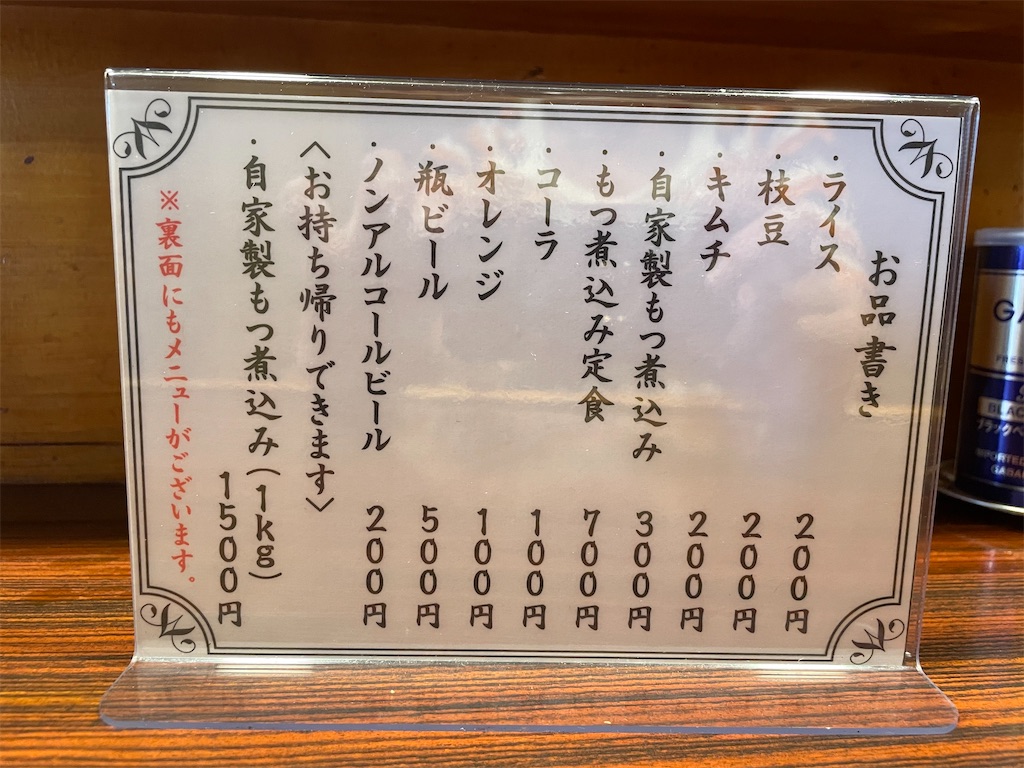 お品書き
・ライス 200円
・枝豆 200円
・キムチ 200円
・自家製もつ煮込み 300円
・もつ煮込み定食 700円
・コーラ 100円
・オレンジ 100円
・瓶ビール 500円
・ノンアルコールビール 200円
〈お持ち帰りできます〉
・自家製もつ煮込み(1kg)
1500円
※裏面にもメニューがございます。
GA
BLAC
ブラックペ
IMPORTED
GABA